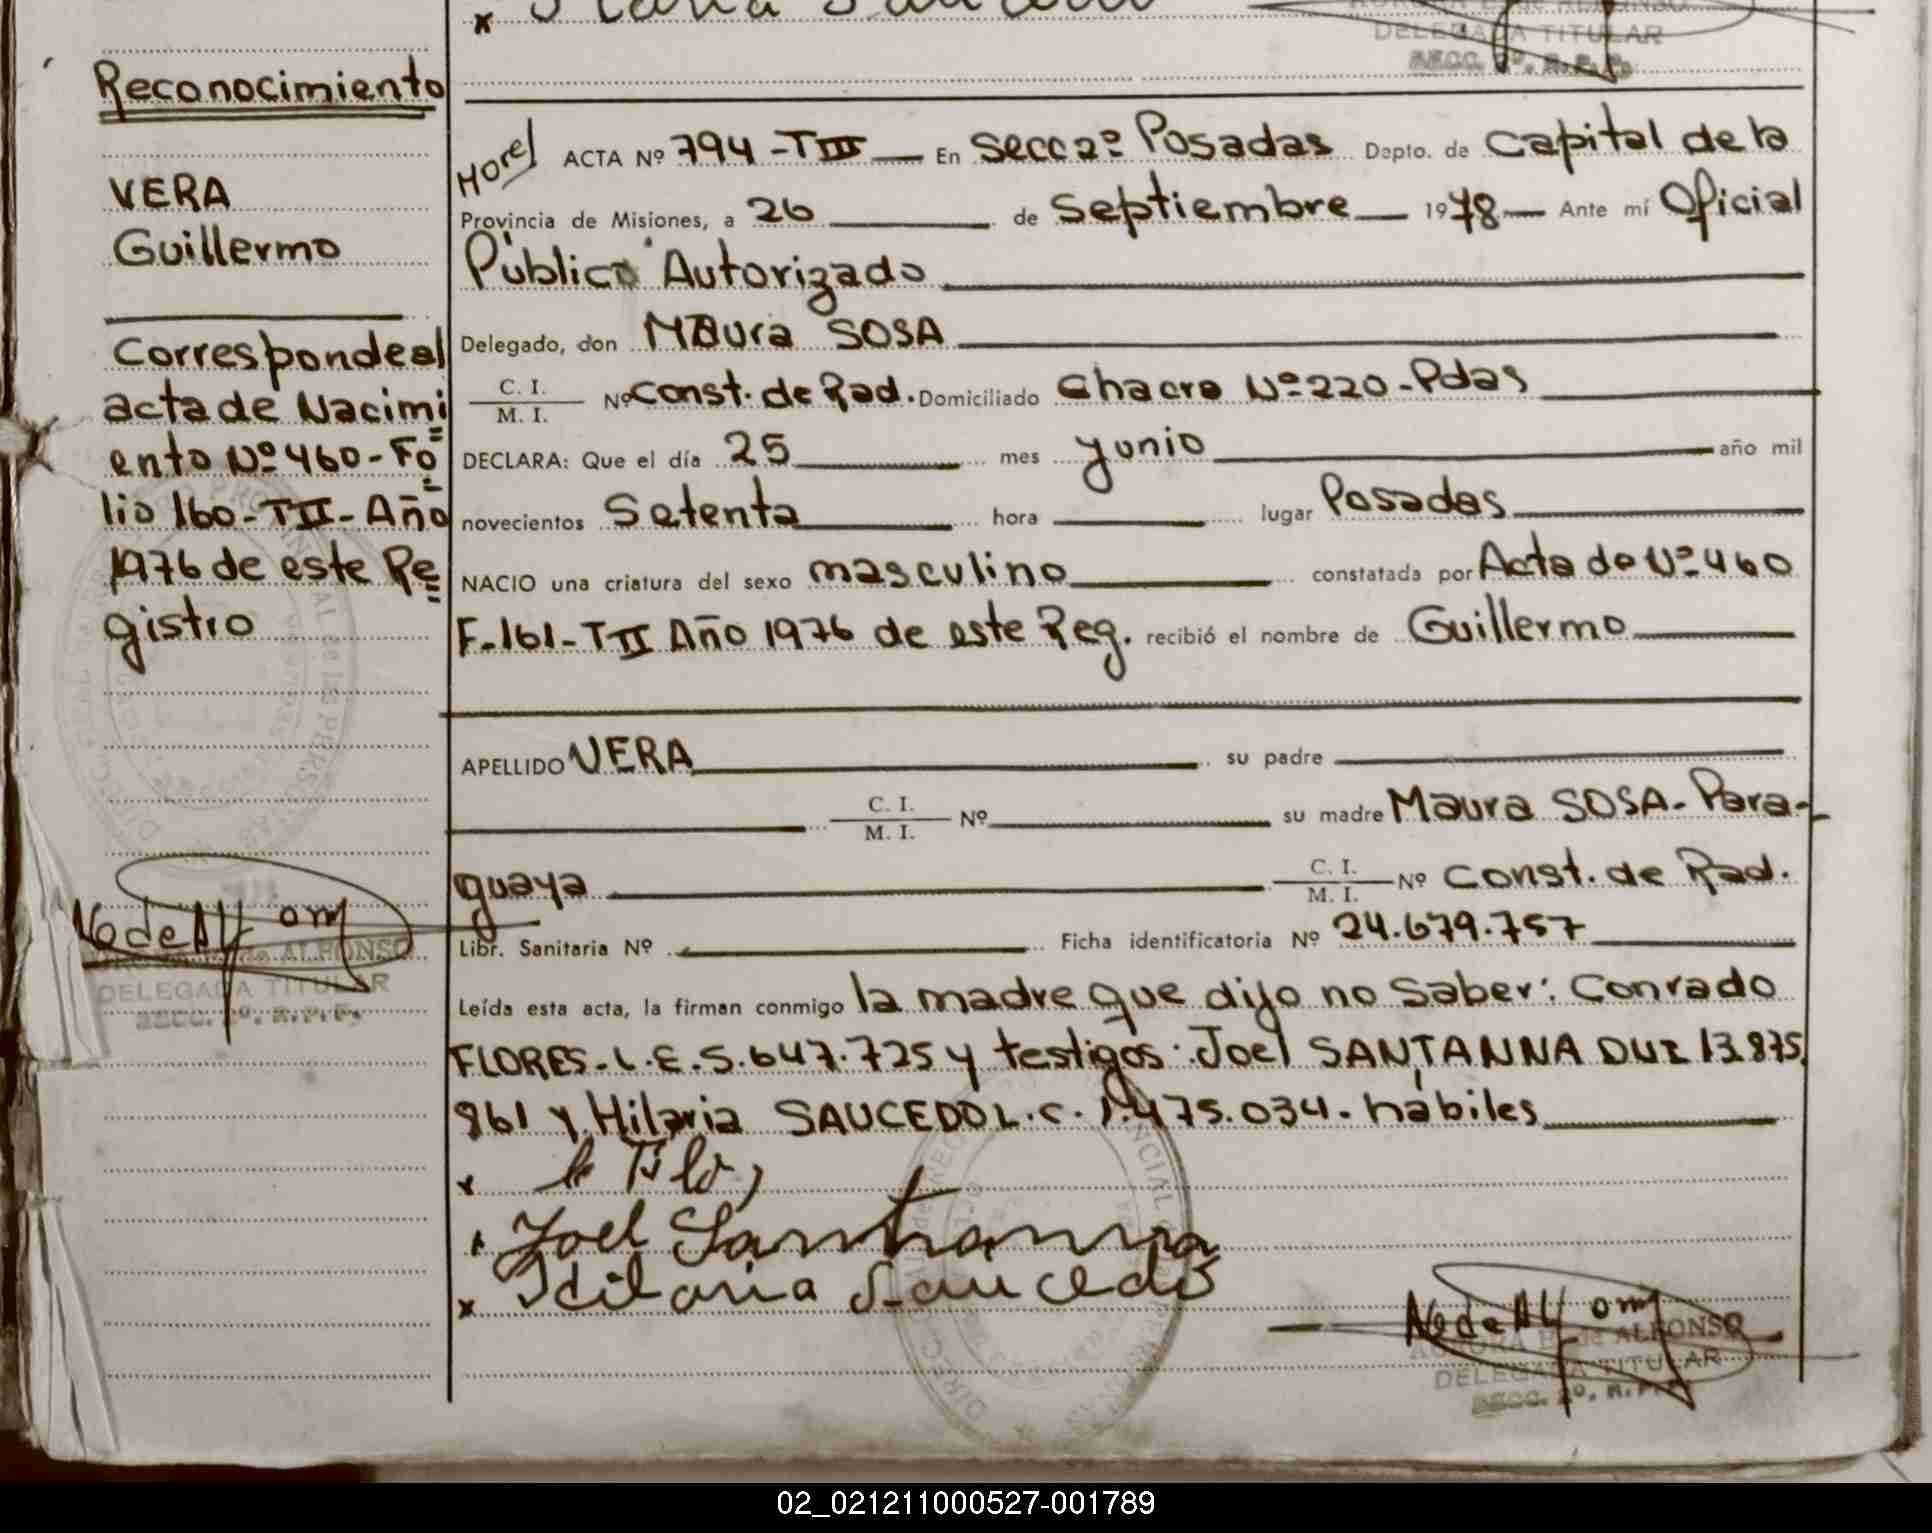 DELEGADA TITULAR
SECC. 2º. R.P.P.
Reconocimiento
VERA
Guillermo
Correspondeal
acta de Nacimi
ento Nº 460-Fo
lio 160-TII-Año
1976 de este Re
gistro
ALFONSO
DELEGADA TITULAR
SECC. 2º. R.P.P.
ACTA Nº 794-TIII En Secc 2º Posadas Depto. de Capital de la
Provincia de Misiones, a 26 de Septiembre 1978 Ante mí Oficial
Público Autorizado
Delegado, don Maura SOSA
C. I.
M. I. Nº Const. de Rad. Domiciliado Chacra Nº 220-Pdas
DECLARA: Que el día 25 mes junio año mil
novecientos Setenta hora lugar Posadas
NACIO una criatura del sexo masculino constatada por Acta de Nº 460
F-161-TII Año 1976 de este Reg. recibió el nombre de Guillermo
APELLIDO VERA su padre
C. I.
M. I. Nº su madre Maura SOSA-Para-
guaya C. I.
M. I. Nº Const. de Rad.
Libr. Sanitaria Nº Ficha identificatoria Nº 24.679.757
Leída esta acta, la firman conmigo la madre que dijo no Saber: Conrado
FLORES-L.E.5.647.725 y testigos: Joel SANTANNA DUI 13.875.
961 y Hilaria SAUCEDO L.C. 1.475.034. hábiles
x
Joel Santanna
x Hilaria Saucedo
de ALFONSO
DELEGADA TITULAR
SECC. 2º. R.P.P.
02_021211000527-001789